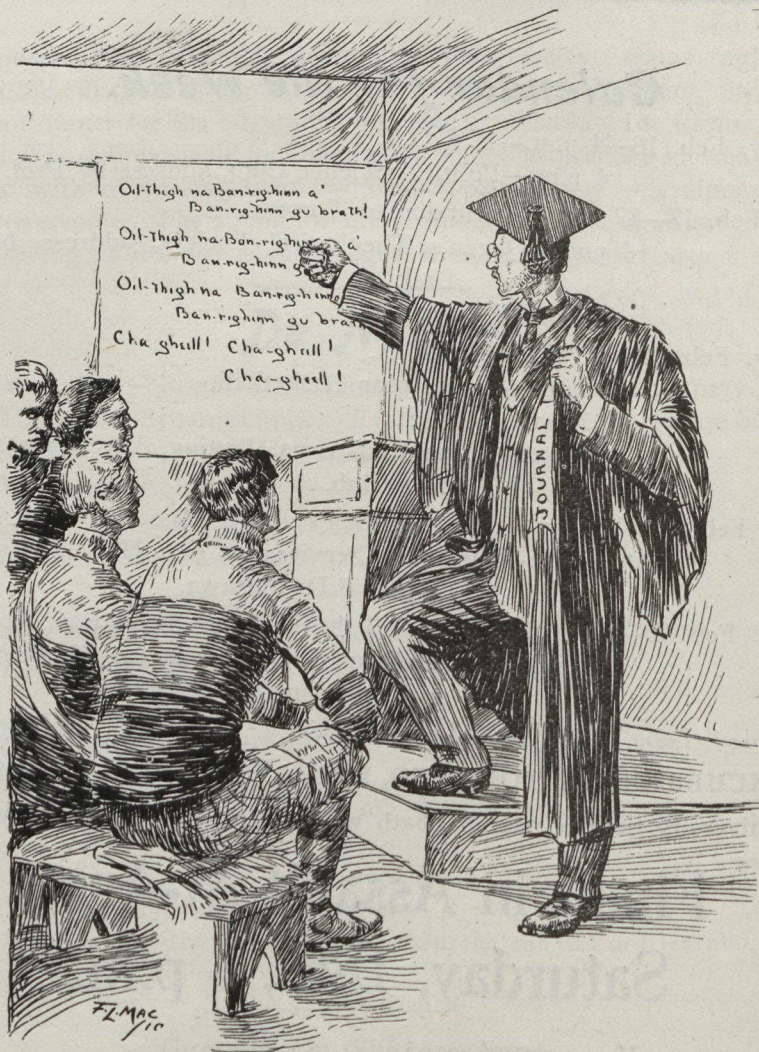 Oil-Thigh na Ban-rig-hinn a'
Ban-rig-hinn gu brath!
Oil-Thigh na-Ban-rig-hinn a'
Ban-rig-hinn g
Oil-Thigh na Ban-rig-hinn
Ban-righinn gu brath
Cha gheill! Cha-gheill!
Cha-gheill!
JOURNAL
F.L.MAC
/10